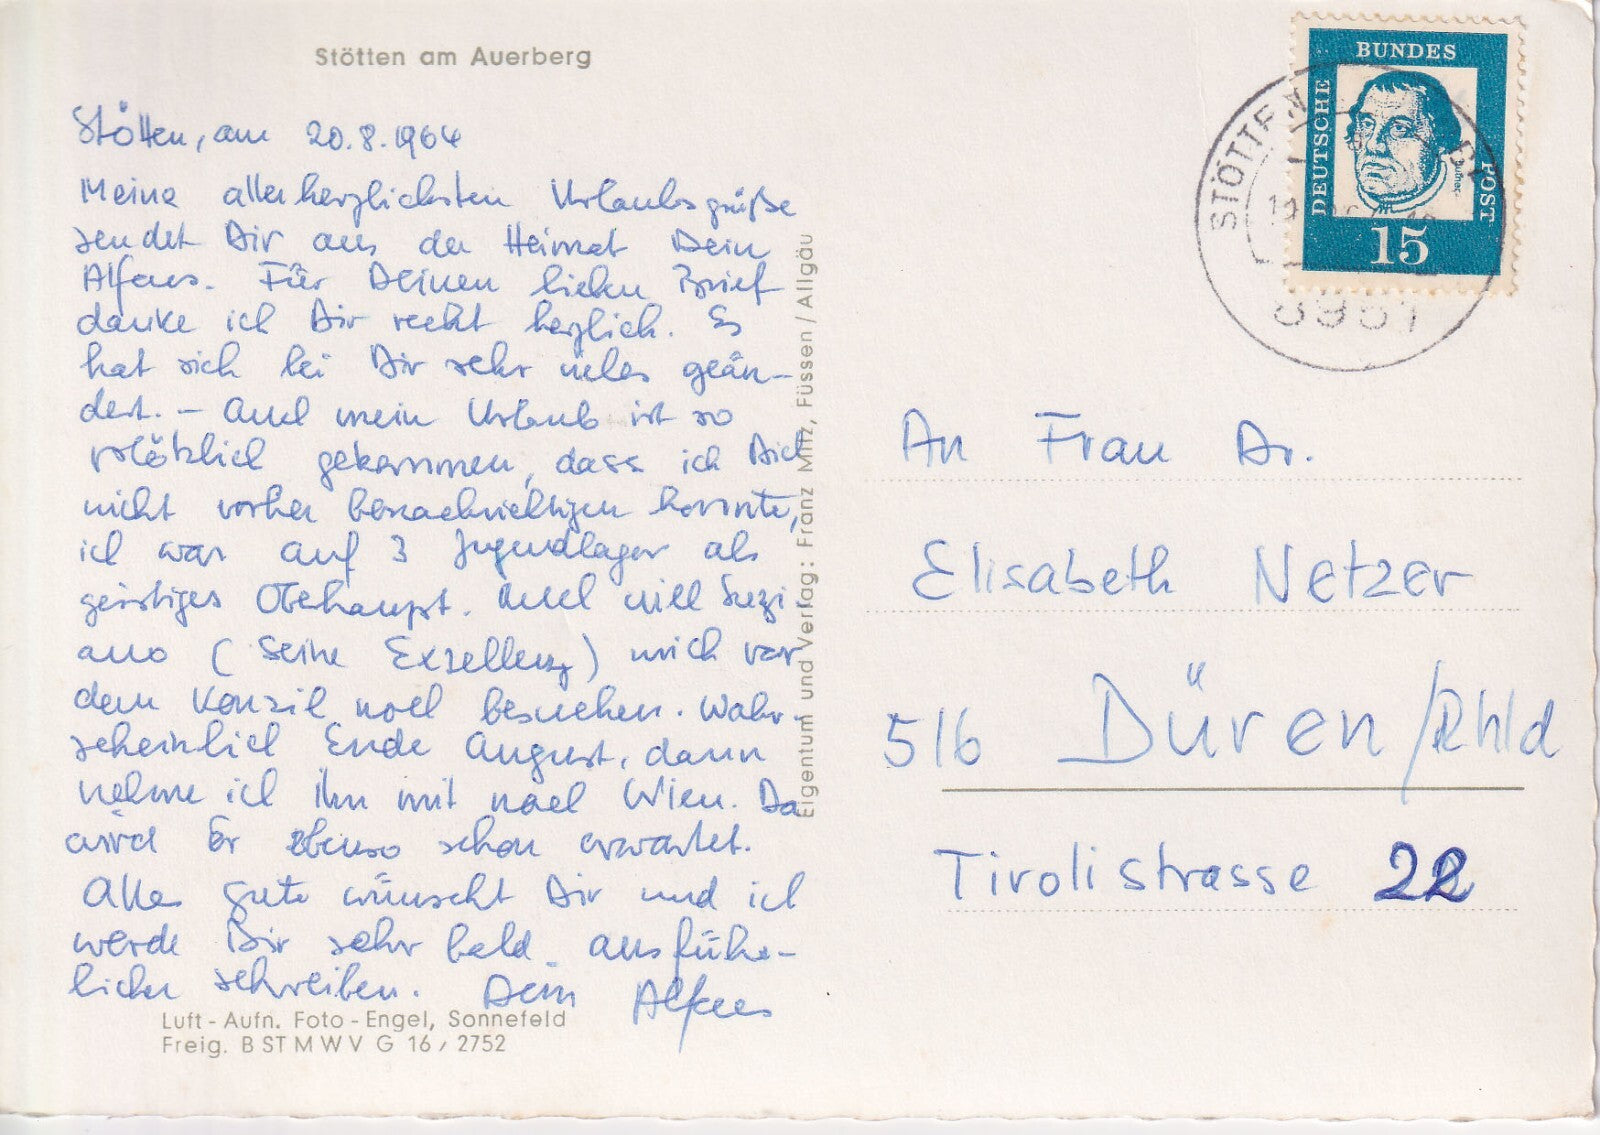 Stötten am Auerberg
Stötten, am 20.8.1964
Meine allerherzlichsten Urlaubsgrüße
sendet Dir aus der Heimat Dein
Alfons. Für Deinen lieben Brief
danke ich Dir recht herzlich. Es
hat sich bei Dir sehr vieles geän-
dert. – Auch mein Urlaub ist so
plötzlich gekommen, dass ich Dich
nicht vorher benachrichtigen konnte,
ich war auf 3 Jugendlager als
geistiges Oberhaupt. Auch will
(Seine Exzellenz) mich vor
dem Konzil noch besuchen. Wahr-
scheinlich Ende August, dann
nehme ich ihn mit nach Wien. Da
wird Er ebenso schon erwartet.
Alles gute wünscht Dir und ich
werde Dir sehr bald ausführ-
licher schreiben. Dein Alfons
Luft-Aufn. Foto-Engel, Sonnefeld
Freig. B ST M W V G 16/2752
Eigentum und Verlag: Franz Milz, Füssen/Allgäu
DEUTSCHE
BUNDES
POST
15
STÖTTEN
8951
An Frau Dr.
Elisabeth Netzer
516 Düren/Rhld
Tirolistrasse 22